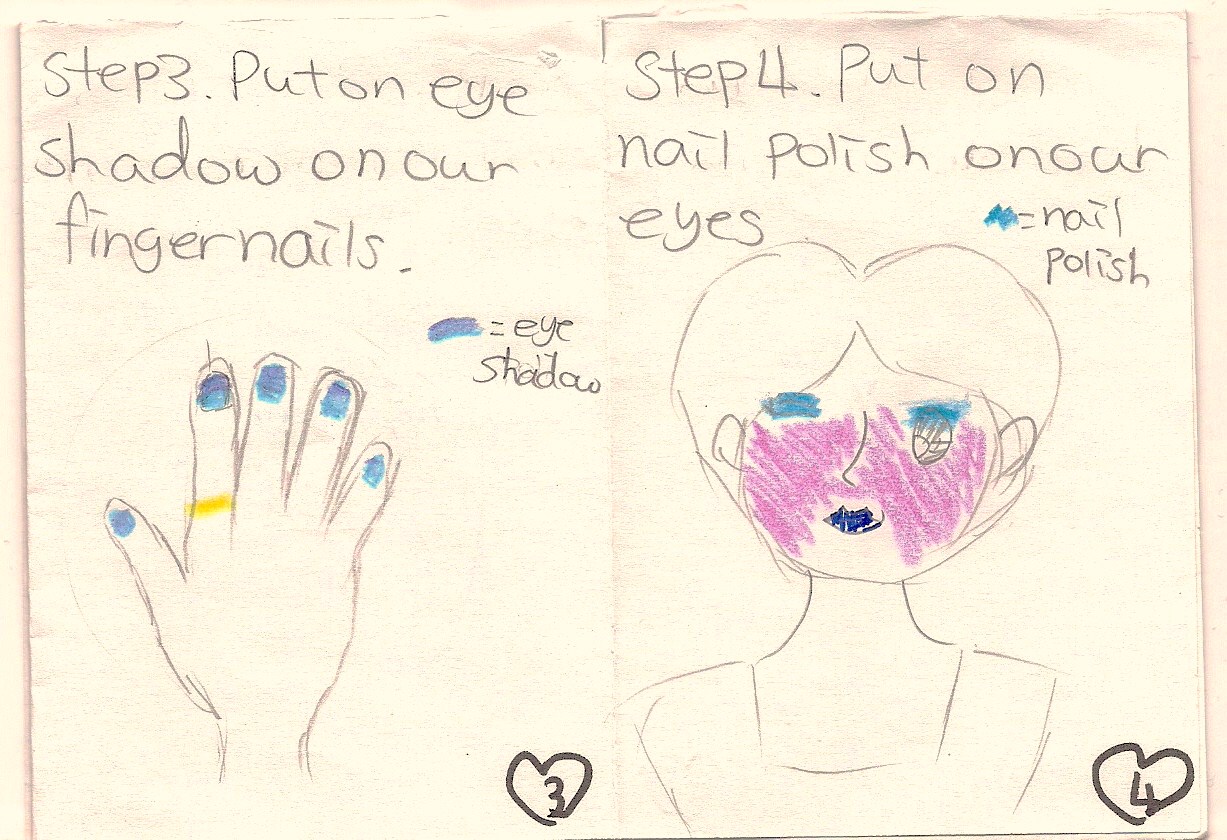 Step3. Put on eye
shadow on our
fingernails.
= eye
shadow
3
Step4. Put on
nail polish on our
eyes
= nail
polish
4